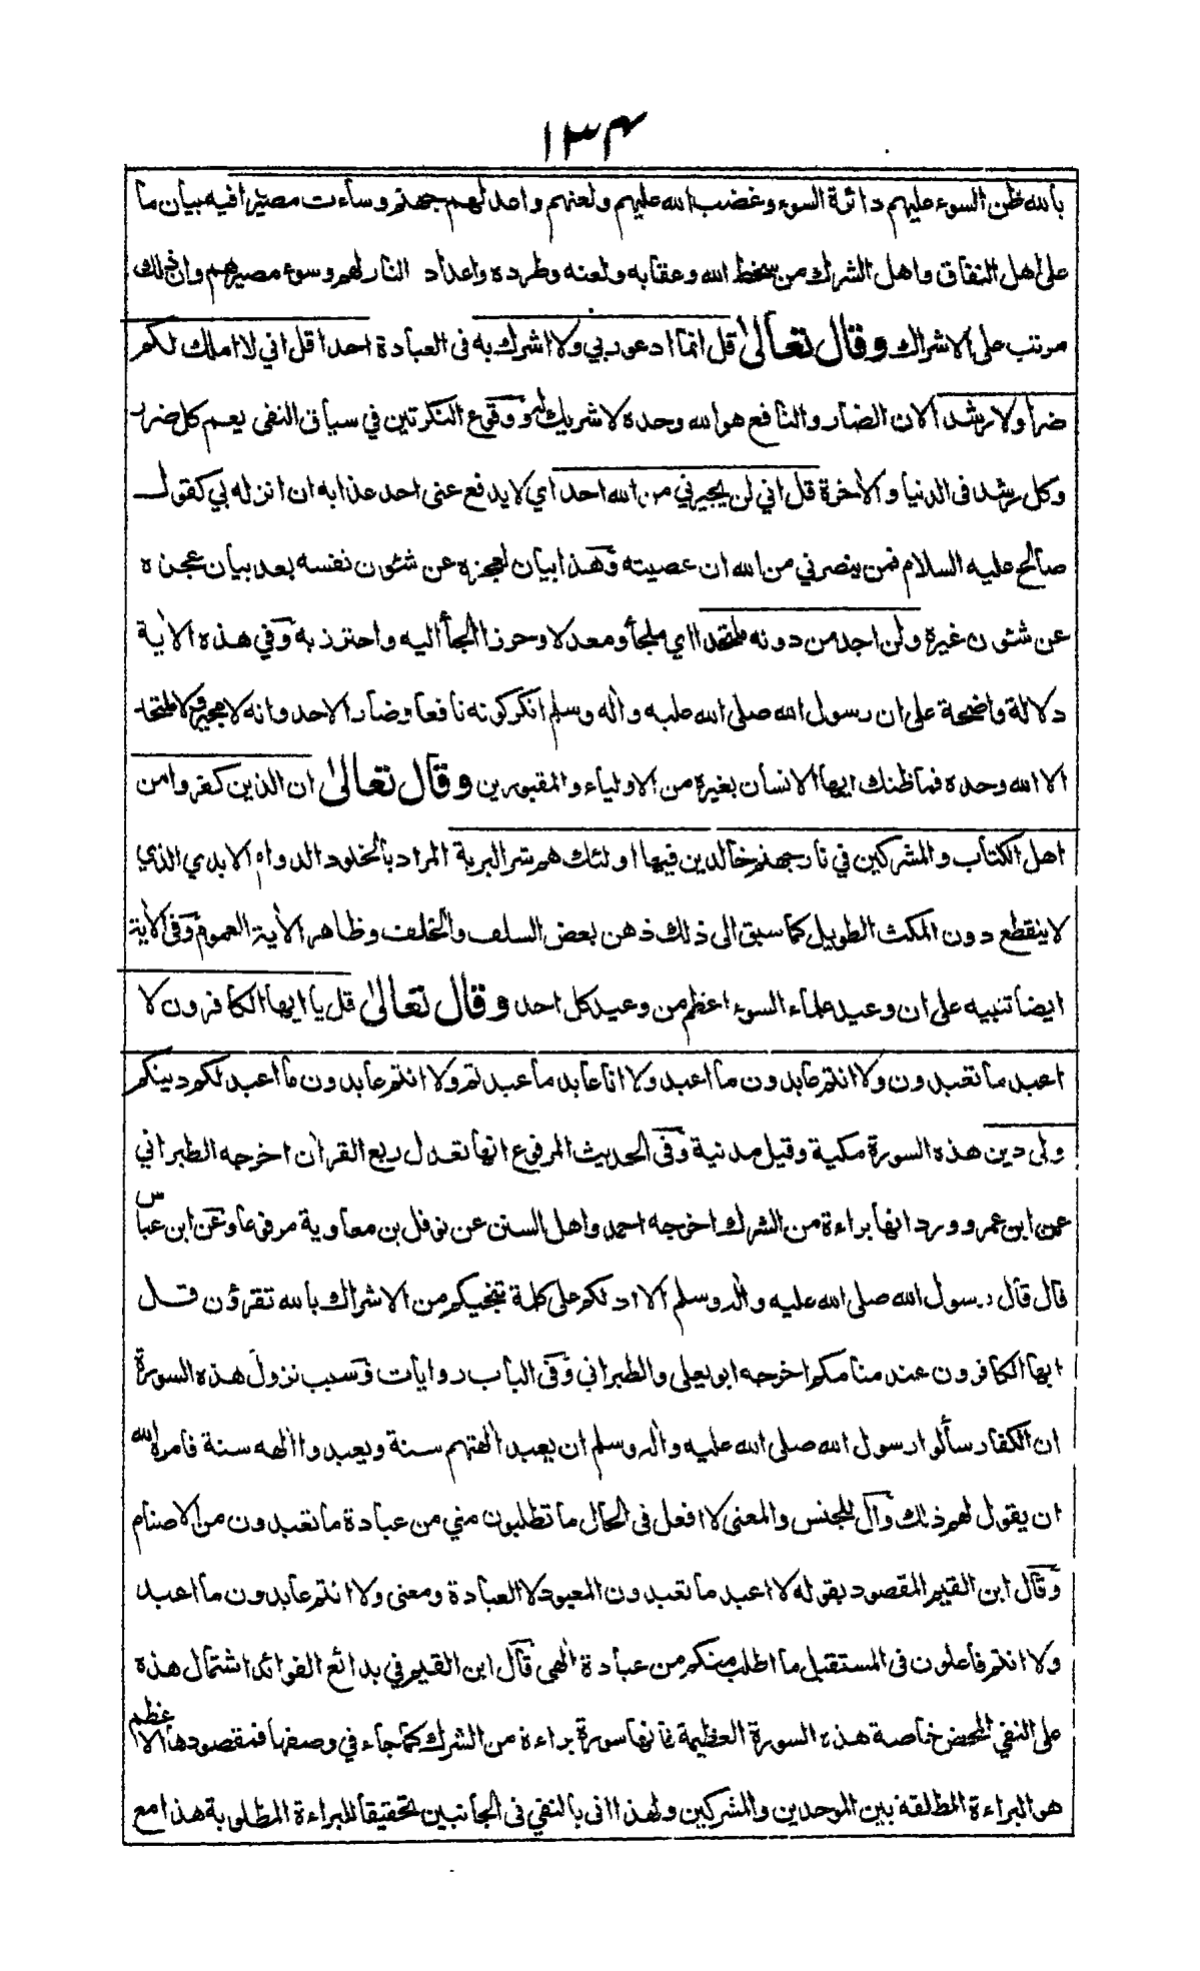 ١٣٤
بالله ظن السوء عليهم دائرة السوء وغضب الله عليهم ولعنهم واعد لهم جهنم وساءت مصيرا فيه بيان ما
على اهل النفاق واهل الشرك من سخط الله وعقابه ولعنه وطرده واعداد النار لهم وسوء مصيرهم وان ذلك
مرتب على الاشراك وقال تعالىٰ قل انما ادعو ربي ولا اشرك به فى العبادة احدا قل اني لا املك لكم
ضرا ولا رشدا لان الضار والنافع هو الله وحده لا شريك له ووقوع النكرتين في سياق النفى يعم كل ضر
وكل رشد فى الدنيا والاٰخرة قل اني لن يجيرني من الله احد اي لا يدفع عنى احد عذابه ان انزله بي كقول
صالح عليه السلام فمن ينصرني من الله ان عصيته وهذا بيان لعجزه عن شئون نفسه بعد بيان عجزه
عن شئون غيره ولن اجد من دونه ملتحدا اي ملجأ ومعدلا وحرزا الجأ اليه واحترز به وفي هذه الاٰية
دلالة واضحة على ان رسول الله صلى الله عليه واٰله وسلم انكر كونه نافعا وضارا لاحد وانه لا مجير ولا ملتحد
الا الله وحده فما ظنك ايها الانسان بغيره من الاولياء والمقبورين وقال تعالىٰ ان الذين كفروا من
اهل الكتاب والمشركين في نار جهنم خالدين فيها اولئك هم شر البرية المراد بالخلود الدوام الابدي الذي
لا ينقطع دون المكث الطويل كما سبق الى ذلك ذهن بعض السلف والخلف وظاهر الاٰية العموم وفى الاٰية
ايضا تنبيه على ان وعيد علماء السوء اعظم من وعيد كل احد وقال تعالىٰ قل يا ايها الكافرون لا
اعبد ما تعبدون ولا انتم عابدون ما اعبد ولا انا عابد ما عبدتم ولا انتم عابدون ما اعبد لكم دينكم
ولى دين هذه السورة مكية وقيل مدنية وفى الحديث المرفوع انها تعدل ربع القراٰن اخرجه الطبراني
عن ابن عمر وورد انها براءة من الشرك اخرجه احمد واهل السنن عن نوفل بن معاوية مرفوعا وعن ابن عباس
قال قال رسول الله صلى الله عليه واٰله وسلم الا ادلكم على كلمة تنجيكم من الاشراك بالله تقرؤن قل
ايها الكافرون عند منامكم اخرجه ابو يعلى والطبراني وفى الباب روايات وسبب نزول هذه السورة
ان الكفار سألوا رسول الله صلى الله عليه واٰله وسلم ان يعبد اٰلهتهم سنة ويعبدوا الهه سنة فامره الله
ان يقول لهم ذلك وآل للجنس والمعنى لا افعل فى الحال ما تطلبون مني من عبادة ما تعبدون من الاصنام
وقال ابن القيم المقصود بقوله لا اعبد ما تعبدون المعبود لا العبادة ومعنى ولا انتم عابدون ما اعبد
ولا انتم فاعلون فى المستقبل ما اطلب منكم من عبادة الٰهى قال ابن القيم في بدائع الفوائد اشتمال هذه
على النفي المحض خاصة هذه السورة العظيمة فانها سورة براءة من الشرك كما جاء في وصفها فمقصودها الاعظم
هو البراءة المطلقة بين الموحدين والمشركين ولهذا اتى بالنفي فى الجانبين تحقيقا للبراءة المطلوبة هذا مع